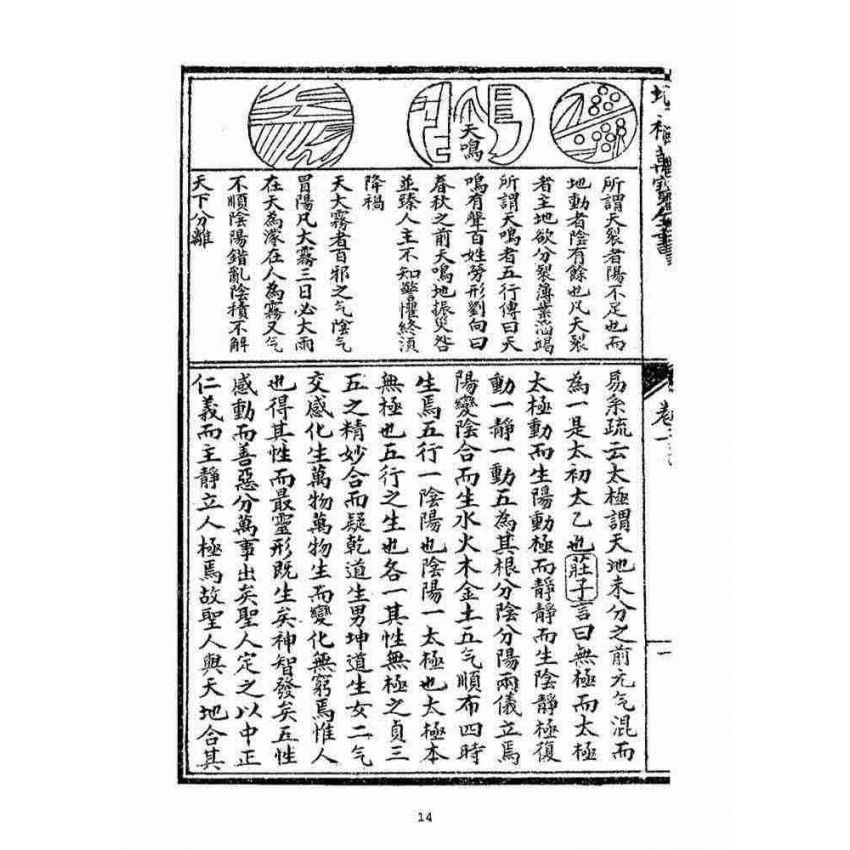 天鳴
所謂天裂者陽不足也而
地動者陰有餘也凡天裂
者主地欲分裂
所謂天鳴者五行傳曰天
鳴有聲百姓勞形劉向曰
春秋之前天鳴地振災咎
並臻人主不知警懼終須
降禍
天大霧者百邪之气陰气
冒陽凡大霧三日必大雨
在天為濛在人為霧又气
不順陰陽錯亂陰積不解
天下分離
易系疏云太極謂天地未分之前元气混而
為一是太初太乙也莊子言曰無極而太極
太極動而生陽動極而靜靜而生陰靜極復
動一靜一動互為其根分陰分陽兩儀立焉
陽變陰合而生水火木金土五气順布四時
生焉五行一陰陽也陰陽一太極也太極本
無極也五行之生也各一其性無極之貞三
五之精妙合而疑乾道生男坤道生女二气
交感化生萬物萬物生而變化無窮焉惟人
也得其性而最靈形既生矣神智發矣五性
感動而善惡分萬事出矣聖人定之以中正
仁義而主靜立人極焉故聖人與天地合其
卷一
一
14